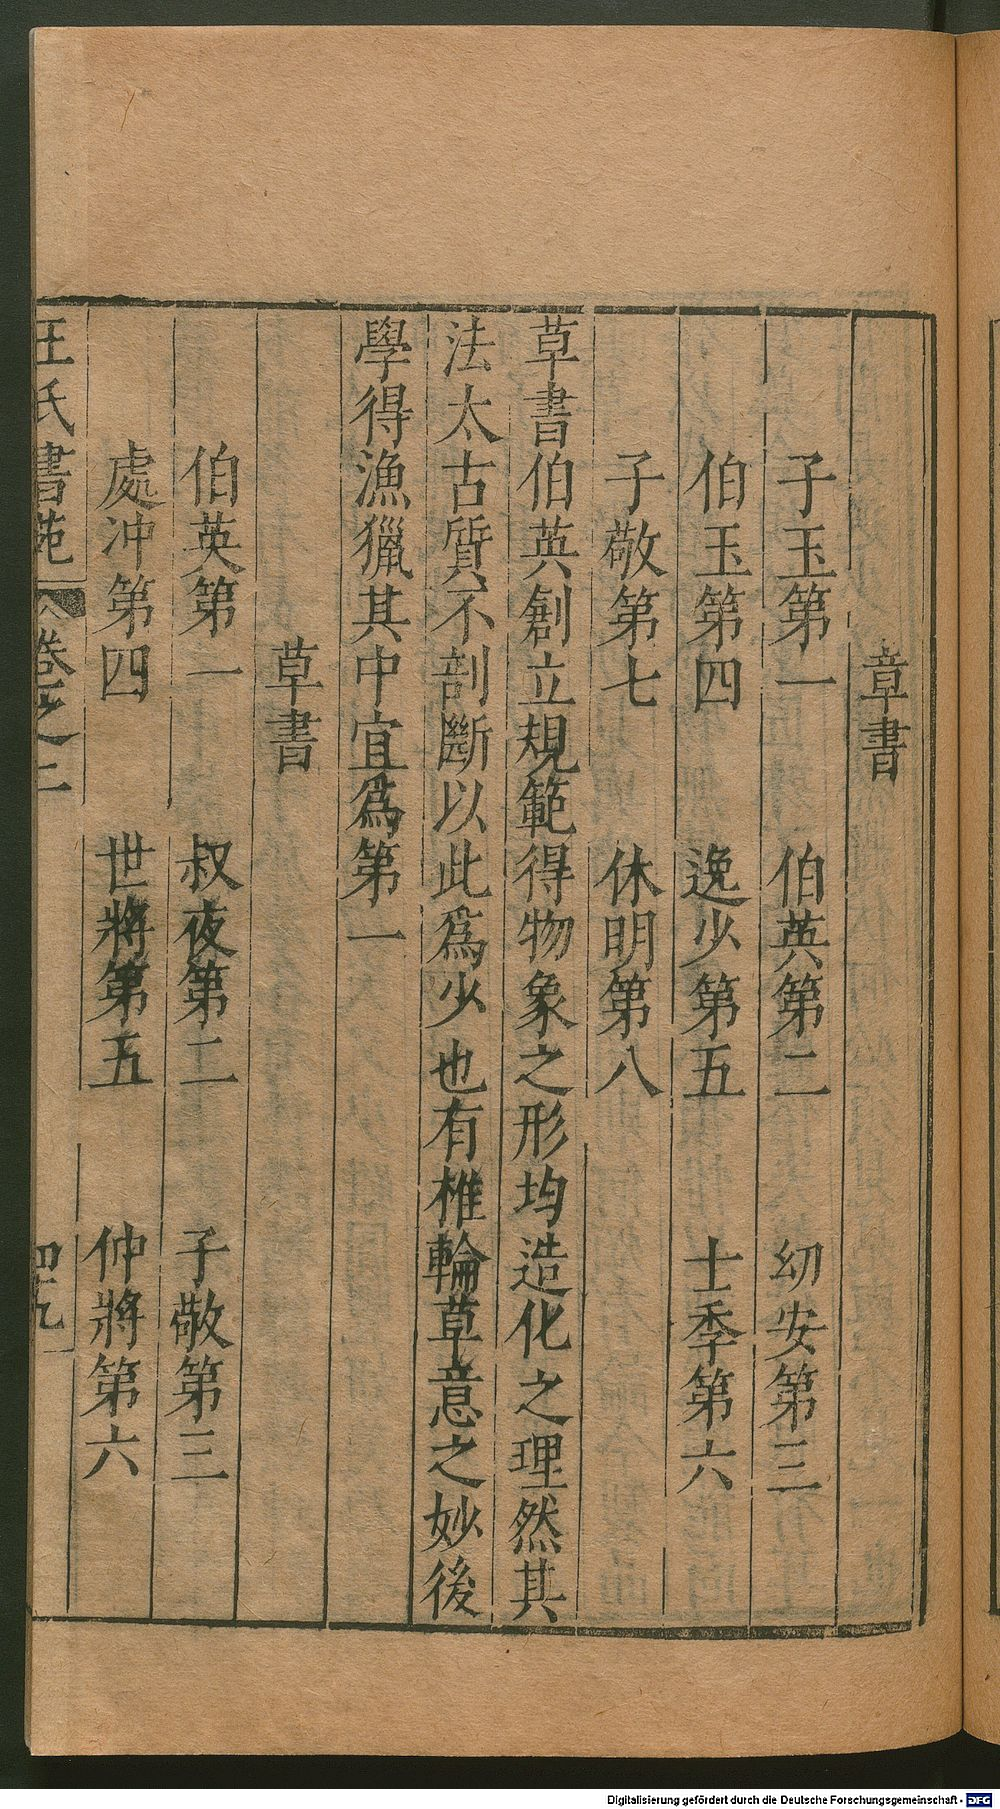 章書
子玉第一　伯英第二　幼安第三
伯玉第四　逸少第五　士季第六
子敬第七　休明第八
草書伯英創立規範得物象之形均造化之理然其
法太古質不剖斷以此爲少也有椎輪草意之妙後
學得漁獵其中宜爲第一
草書
伯英第一　叔夜第二　子敬第三
處冲第四　世將第五　仲將第六
王氏書苑　卷之二　四九
Digitalisierung gefördert durch die Deutsche Forschungsgemeinschaft - DFG